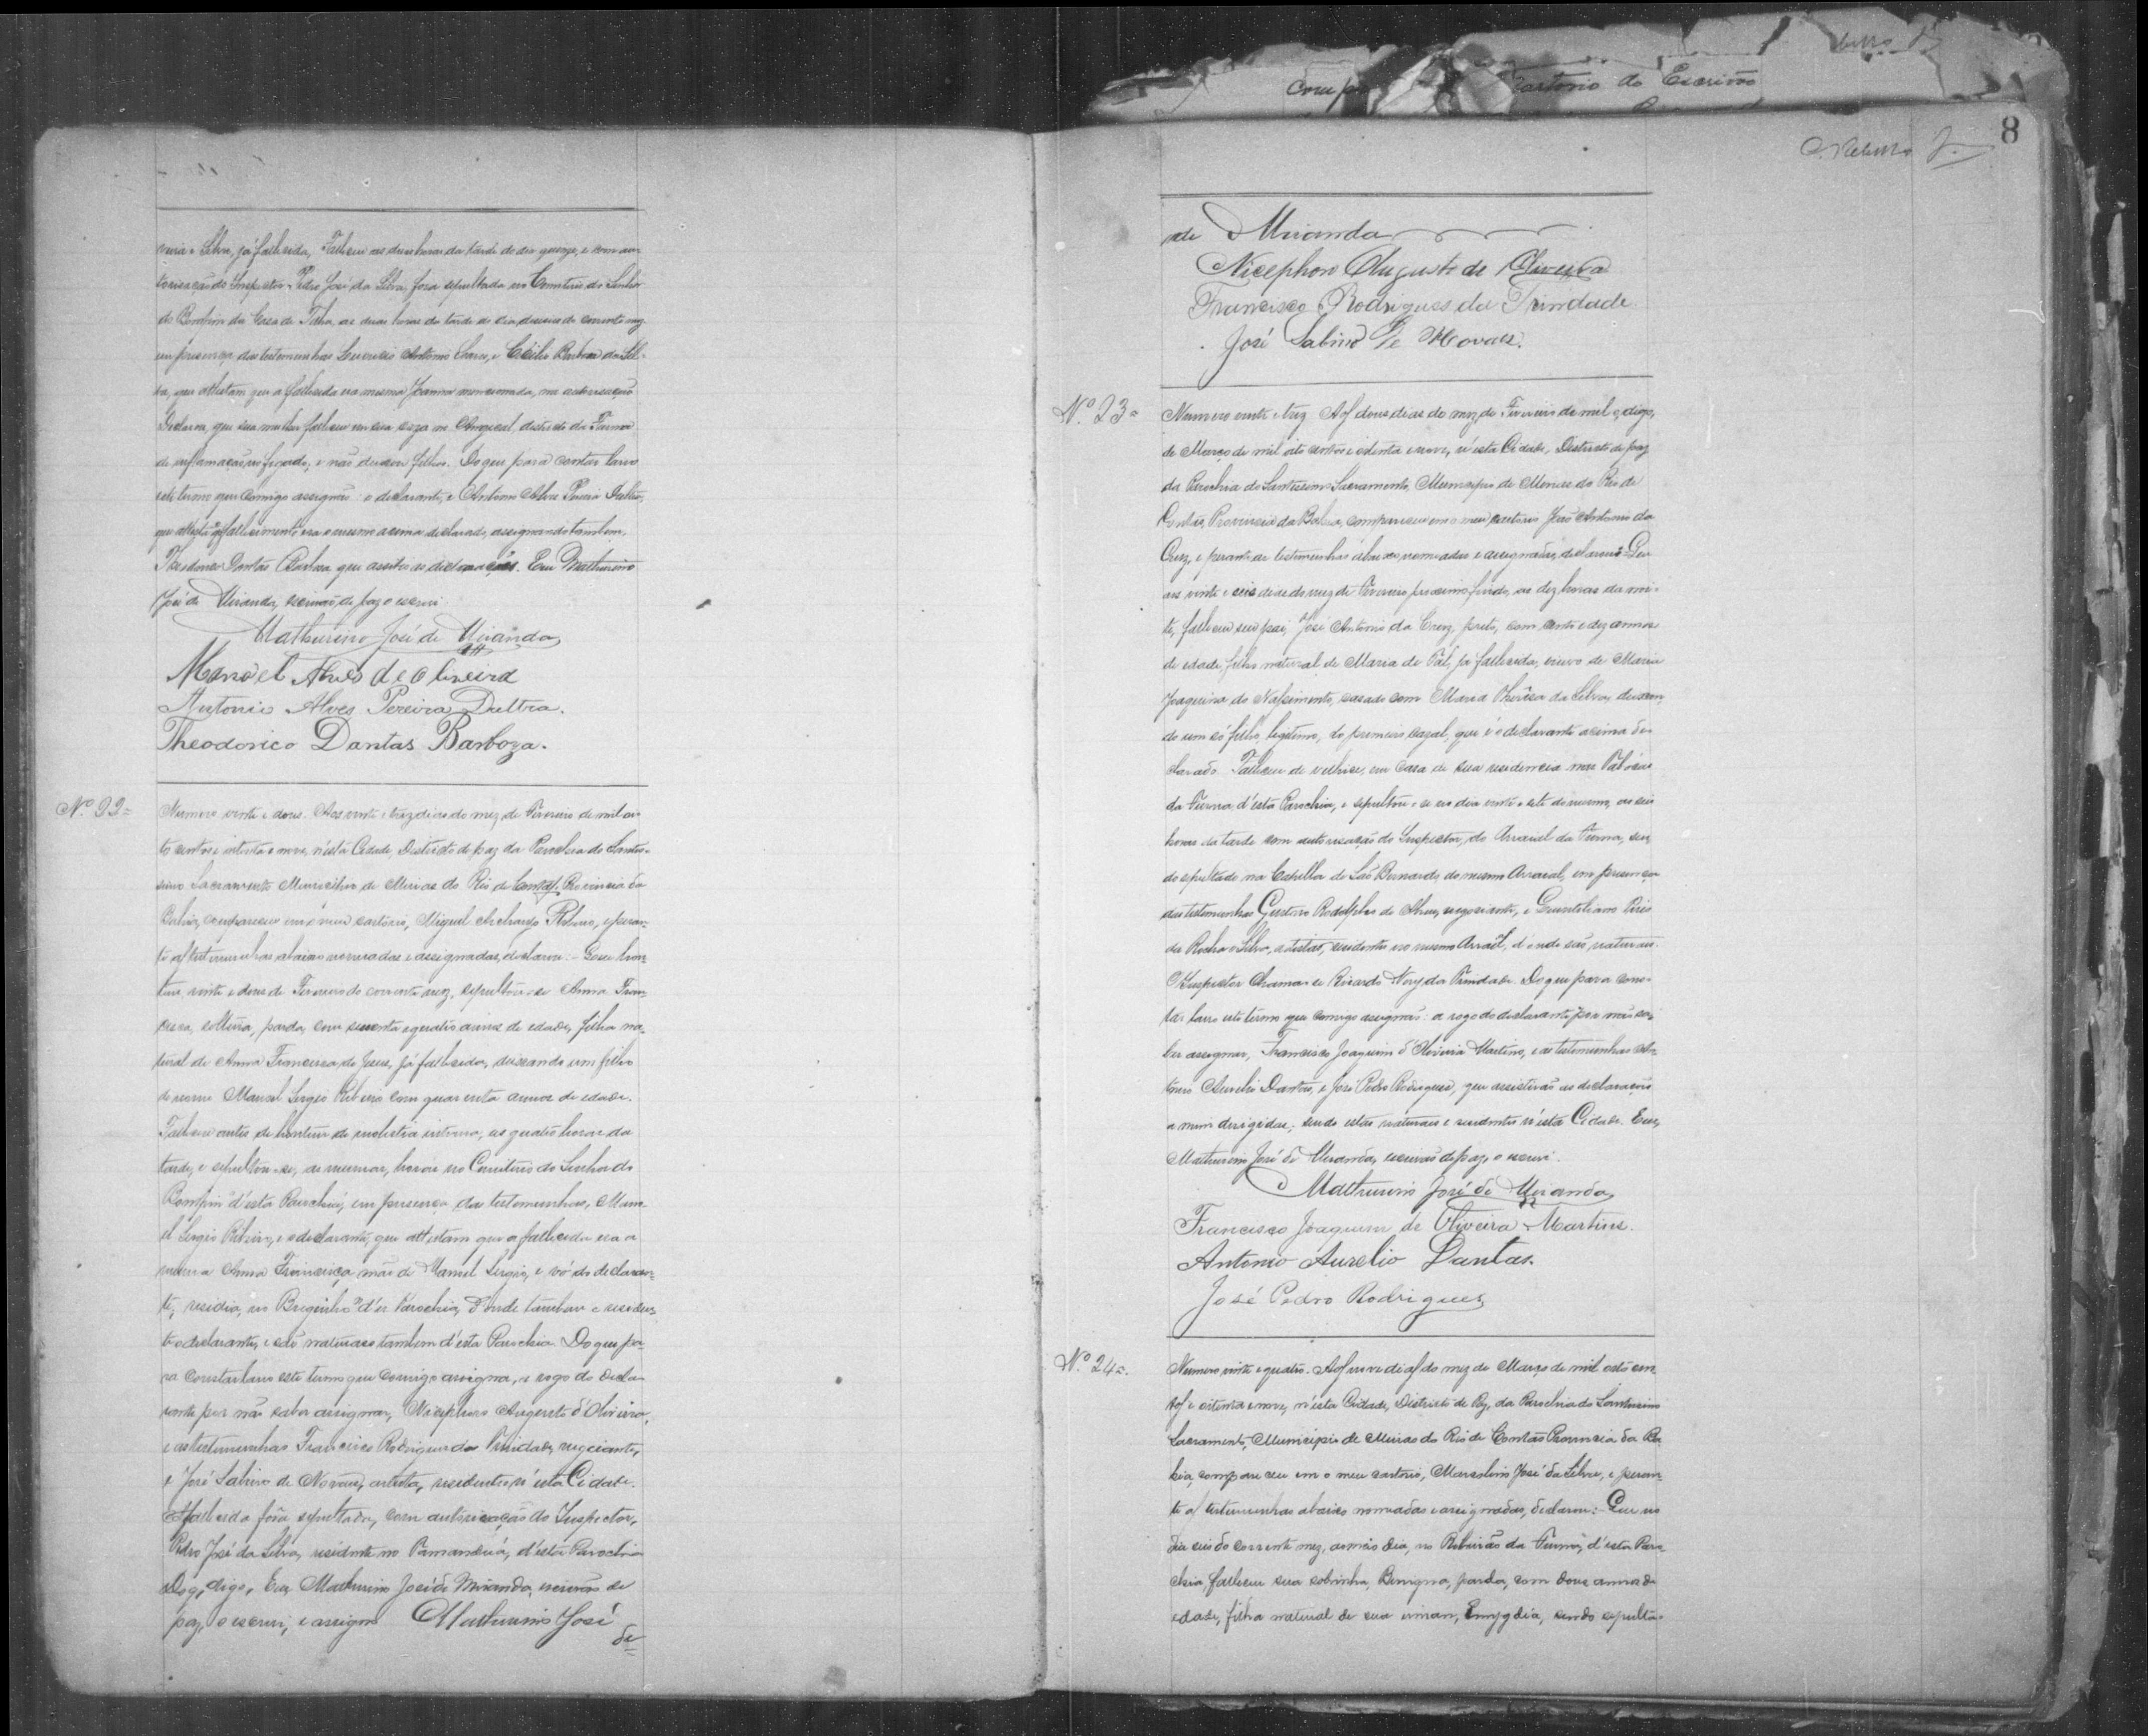 veira e Silva, já fallecida, Falleceu as duas horas da tarde do dia quinze, e com au-
torisação do Inspector Pedro José da Silva, fora sepultada no Cemiterio do Senhor
do Bomfim da Casa de Telha, as duas horas da tarde do dia deseseis do corrente mez
em presença das testemunhas Antonio e Barboza da Sil-
va, que attestam que a fallecida era mesma Joanna mencionada, na autorisação
Declarou, que sua mulher falleceu em sua caza no districto da Furna
de inflamação no figado, e não deixou filhos. Do que para constar lavro
este termo que comigo assignão o declarante, e Antonio Alves Pereira Dultra,
que attesta q o fallecimento era o mesmo acima declarado, assignando tambem,
Theodorico Dantas Barboza que assistio as declarações. Eu Mathurino
José de Miranda, escrivão de paz o escrevi
Mathurino José de Miranda
Manoel Alves de Oliveira
Antonio Alves Pereira Dultra.
Theodorico Dantas Barboza.
Nº 22=
Numero vinte e dous. Aos vinte e trez dias do mez de Fevereiro de mil oi-
to centos e oitenta e nove, n'esta Cidade, Districto de paz da Parochia do Santis-
simo Sacramento Municipio de Minas do Rio de Contas, Provincia da
Bahia, compareceu em o meu cartorio, Miguel Archanjo Ribeiro, e peran-
te as testemunhas abaixo nomeadas e assignadas, declarou: - Que hon-
tem, vinte e dous de Fevereiro do corrente mez, sepultou-se Anna Fran-
cisca, solteira, parda, com secenta e quatro annos de edade, filha na-
tural de Anna Francisca de Jesus, já fallecida, deixando um filho
de nome Manoel Sergio Ribeiro com quarenta annos de edade.
Falleceu antes de hontem de molestia interna, as quatro horas da
tarde, e sepultou-se, as mesmas, horas no Cemiterio do Senhor do
Bomfim d'esta Parochia, em presença das testemunhas, Mano-
el Sergio Ribeiro, e o declarante, que attestam que a fallecida era a
mesma Anna Francisca mãe de Manoel Sergio, e vó do declaran-
te, residia, no Breginho d'es Parochia, d'onde tambem e residen-
te o declarante, e são naturaes tambem d'esta Parochia. Do que pa-
ra constar lavro este termo que comigo assigna, a rogo do decla-
rante por não saber assignar, Nicephoro Augusto d'Oliveira,
e as testemunhas Francisco Rodrigues da Trindade, negociante,
e José Sabino de Novaes, artista, residentes n'esta Cidade.
A fallecida fora sepultada, com autorisação do Inspector,
Pedro José da Silva, residente no d'esta Parochia
Doq, digo, Eu, Mathurino José de Miranda, escrivão de
paz, o escrevi, e assigno Mathurino José
de
8
Comp Cartorio do Escrivão
de Miranda
Nicephoro Augusto de Oliveira
Francisco Rodrigues da Trindade
José Sabino de Novaes.
Nº 23=
Numero vinte e trez Aos dous dias do mez de Fevereiro de mil e, digo,
de Março de mil oito centos e oitenta e nove, n'esta Cidade, Districto de paz
da Parochia do Santissimo Sacramento, Municipio de Minas do Rio de
Contas, Provincia da Bahia, compareceu em o meu cartorio João Antonio da
Cruz, e perante as testemunhas abaixo nomeadas e assignadas, declarou: Que
aos vinte e seis dias do mez de Fevereiro proximo findo, as dez horas da noi-
te, falleceu seu pai, José Antonio da Cruz, preto, com cento e dez annos
de edade, filho natural de Maria de Tal, já fallecida, viuvo de Maria
Joaquina do Nascimento, casado com Maria Thereza da Silva, deixan-
do um só filho legitimo, do primeiro cazal, que é o declarante acima de-
clarado. Falleceu de velhice, em casa de sua residencia nas
da Furna, d'esta Parochia, e sepultou-se no dia vinte e sete do mesmo, as seis
horas da tarde com autorisação do Inspector, do Arraial da Furna, sen-
do sepultado na Capella de São Bernardo, do mesmo Arraial, em presença
das testemunhas Gustavo Rodolpho de Abreu, negociante, e Quintiliano Pires
da Rocha e Silva, artistas, residentes no mesmo Arraial, d'onde são naturaes.
O Inspector chama-se Ricardo da Trindade. Do que para cons-
tar lavro este termo que comigo assignão: a rogo do declarante por não sa-
ber assignar, Francisco Joaquim d'Oliveira Martins, e as testemunhas An-
tonio Aurelio Dantas, e José Pedro Rodrigues, que assistirão as declarações
a mim dirigidas; sendo estas naturaes e residentes n'esta Cidade. Eu,
Mathurino José de Miranda, escrivão de paz, o escrevi.
Mathurino José de Miranda
Francisco Joaquim de Oliveira Martins.
Antonio Aurelio Dantas.
José Pedro Rodrigues
Nº 24=.
Numero vinte e quatro. Aos nove dias do mez de Março de mil oito cen-
tos e oitenta e nove, n'esta Cidade, Districto de Paz, da Parochia do Santissimo
Sacramento, Municipio de Minas do Rio de Contas Provincia da Ba-
hia, compareceu em o meu cartorio, Marcolino José da Silva, e peran-
te as testemunhas abaixo nomeadas e assignadas, declarou: Que no
dia seis do corrente mez, ao meio dia, no Ribeirão da Furna, d'esta Paro-
chia, falleceu sua sobrinha, Benigna, parda, com dous annos de
edade, filha natural de sua irman, Emygdia, sendo sepulta-